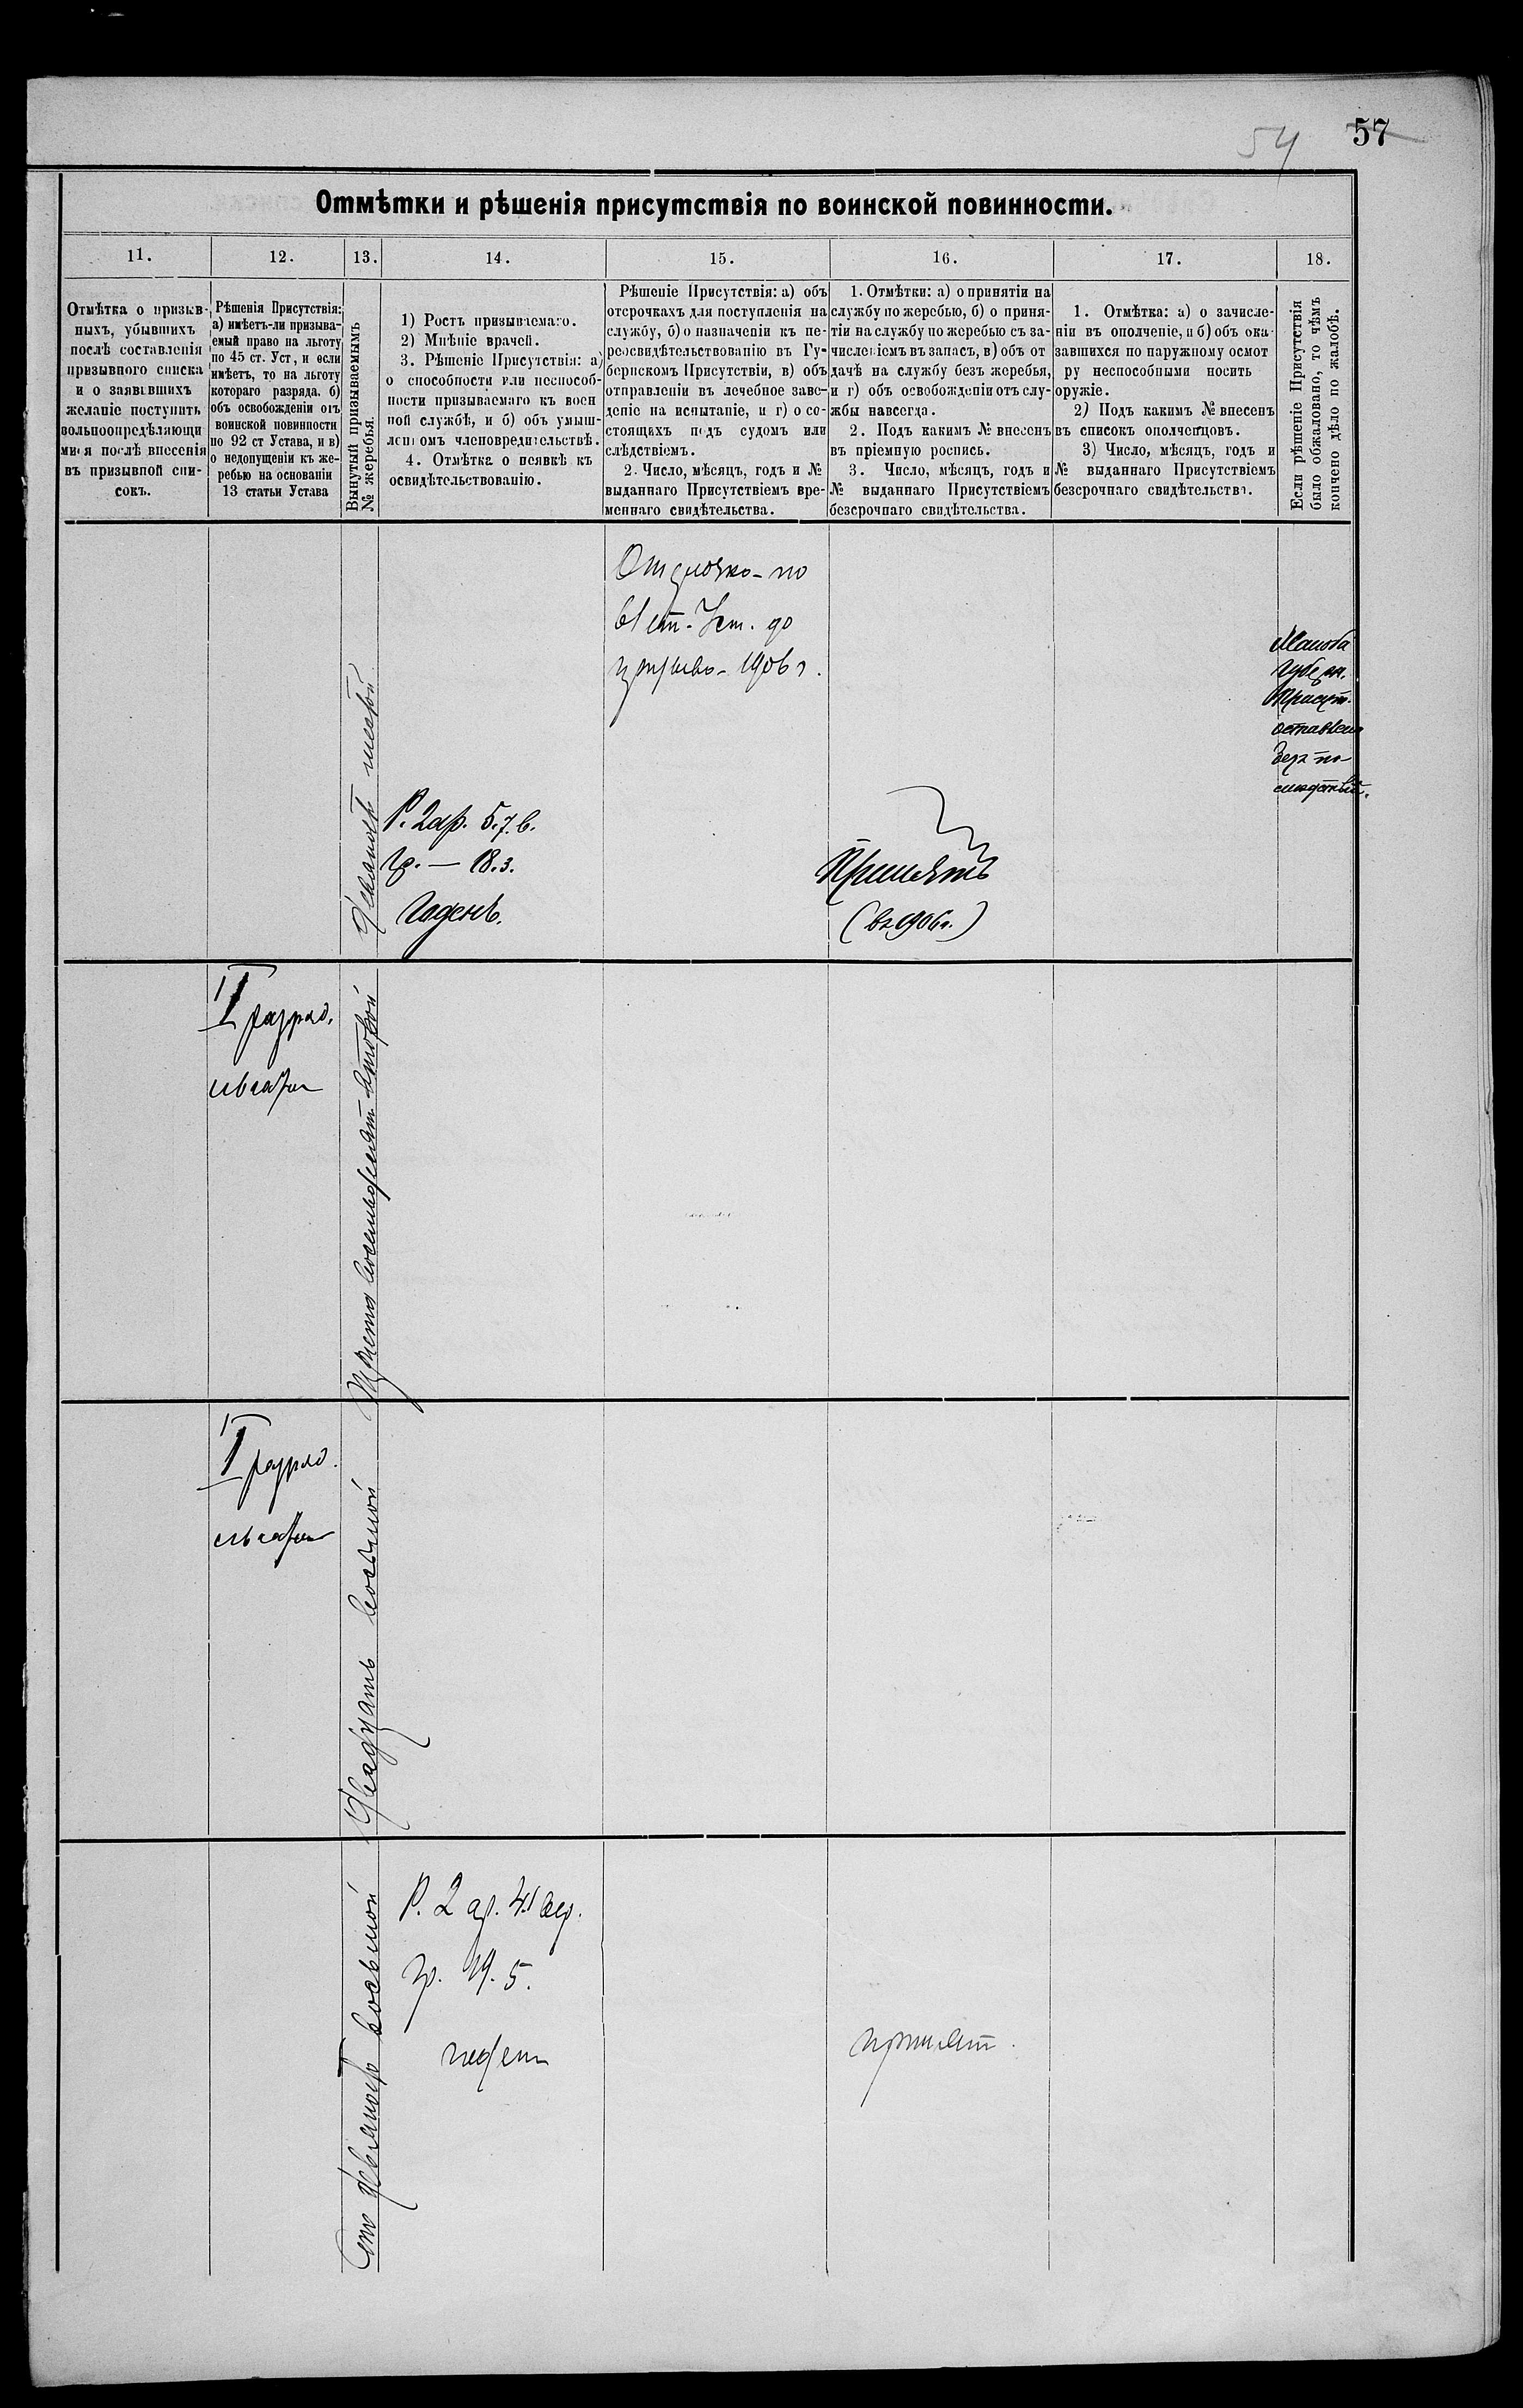 54 57
Отмѣтки и рѣшенія присутствія по воинской повинности.
11.
12.
13.
14.
15.
16.
17.
18.
Отмѣтка о призыв-
ныхъ, убывшихъ
послѣ составленія
призывного списка
и о заявившихъ
желаніе поступить
вольноопредѣляющи
мися послѣ внесенія
въ призывной спи-
сокъ.
Рѣшенія Присутствія:
а) имѣетъ-ли призыва-
емый право на льготу
по 45 ст. Уст, и если
имѣетъ, то на льготу
котораго разряда. б)
объ освобожденіи отъ
воинской повинности
по 92 ст Устава, и в)
о недопущеніи къ же-
ребью на основаніи
13 статьи Устава
Вынутый призываемымъ
№ жеребья.
1) Ростъ призываемаго.
2) Мнѣніе врачей.
3. Рѣшеніе Присутствія: а)
о способности или неспособ-
ности призываемаго къ воен
ной службѣ, и б) объ умыш-
леномъ членовредительствѣ.
4. Отмѣтка о неявкѣ къ
освидѣтельствованію.
Рѣшеніе Присутствія: а) объ
отсрочкахъ для поступленія на
службу, б) о назначеніи къ пе-
реосвидѣтельствованію въ Гу-
бернскомъ Присутствіи, в) объ
отправленіи въ лечебное заве-
деніе на испытаніе, и г) о со-
стоящихъ подъ судомъ или
слѣдствіемъ.
2. Число, мѣсяцъ, годъ и №
выданнаго Присутствіемъ вре-
меннаго свидѣтельства.
1. Отмѣтки: а) о принятіи на
службу по жеребью, б) о приня-
тіи на службу по жеребью съ за-
численіемъ въ запасъ, в) объ от
дачѣ на службу безъ жеребья,
и г) объ освобожденіи отъ слу-
жбы навсегда.
2. Подъ какимъ № внесенъ
въ пріемную роспись.
3. Число, мѣсяцъ, годъ и
№ выданнаго Присутствіемъ
безсрочнаго свидѣтельства.
1. Отмѣтка: а) о зачисле-
ніи въ ополченіе, и б) объ ока-
завшихся по наружному осмот
ру неспособными носить
оружіе.
2) Подъ какимъ № внесенъ
въ списокъ ополченцовъ.
3) Число, мѣсяцъ, годъ и
№ выданнаго Присутствіемъ
безсрочнаго свидѣтельства.
Если рѣшеніе Присутствія
было обжаловано, то чѣмъ
кончено дѣло по жалобѣ.
девяносто шестой
Р. 2 ар. 5.7. в.
гр. — 18.3.
Годенъ.
Отсрочка по
61 ст. Уст. до
призыва 1906 г.
Принятъ
(въ 1906 г.)
Жалоба
Губерн.
Присут.
оставлена
безъ по-
слѣдствій.
I разряд.
льготы
Триста восемьдесят второй
I разряд.
льготы
Двадцать восьмой
Сто девяносто восьмой
Р. 2 ар. 4.1 вер.
гр. 19.5.
годен
принят.